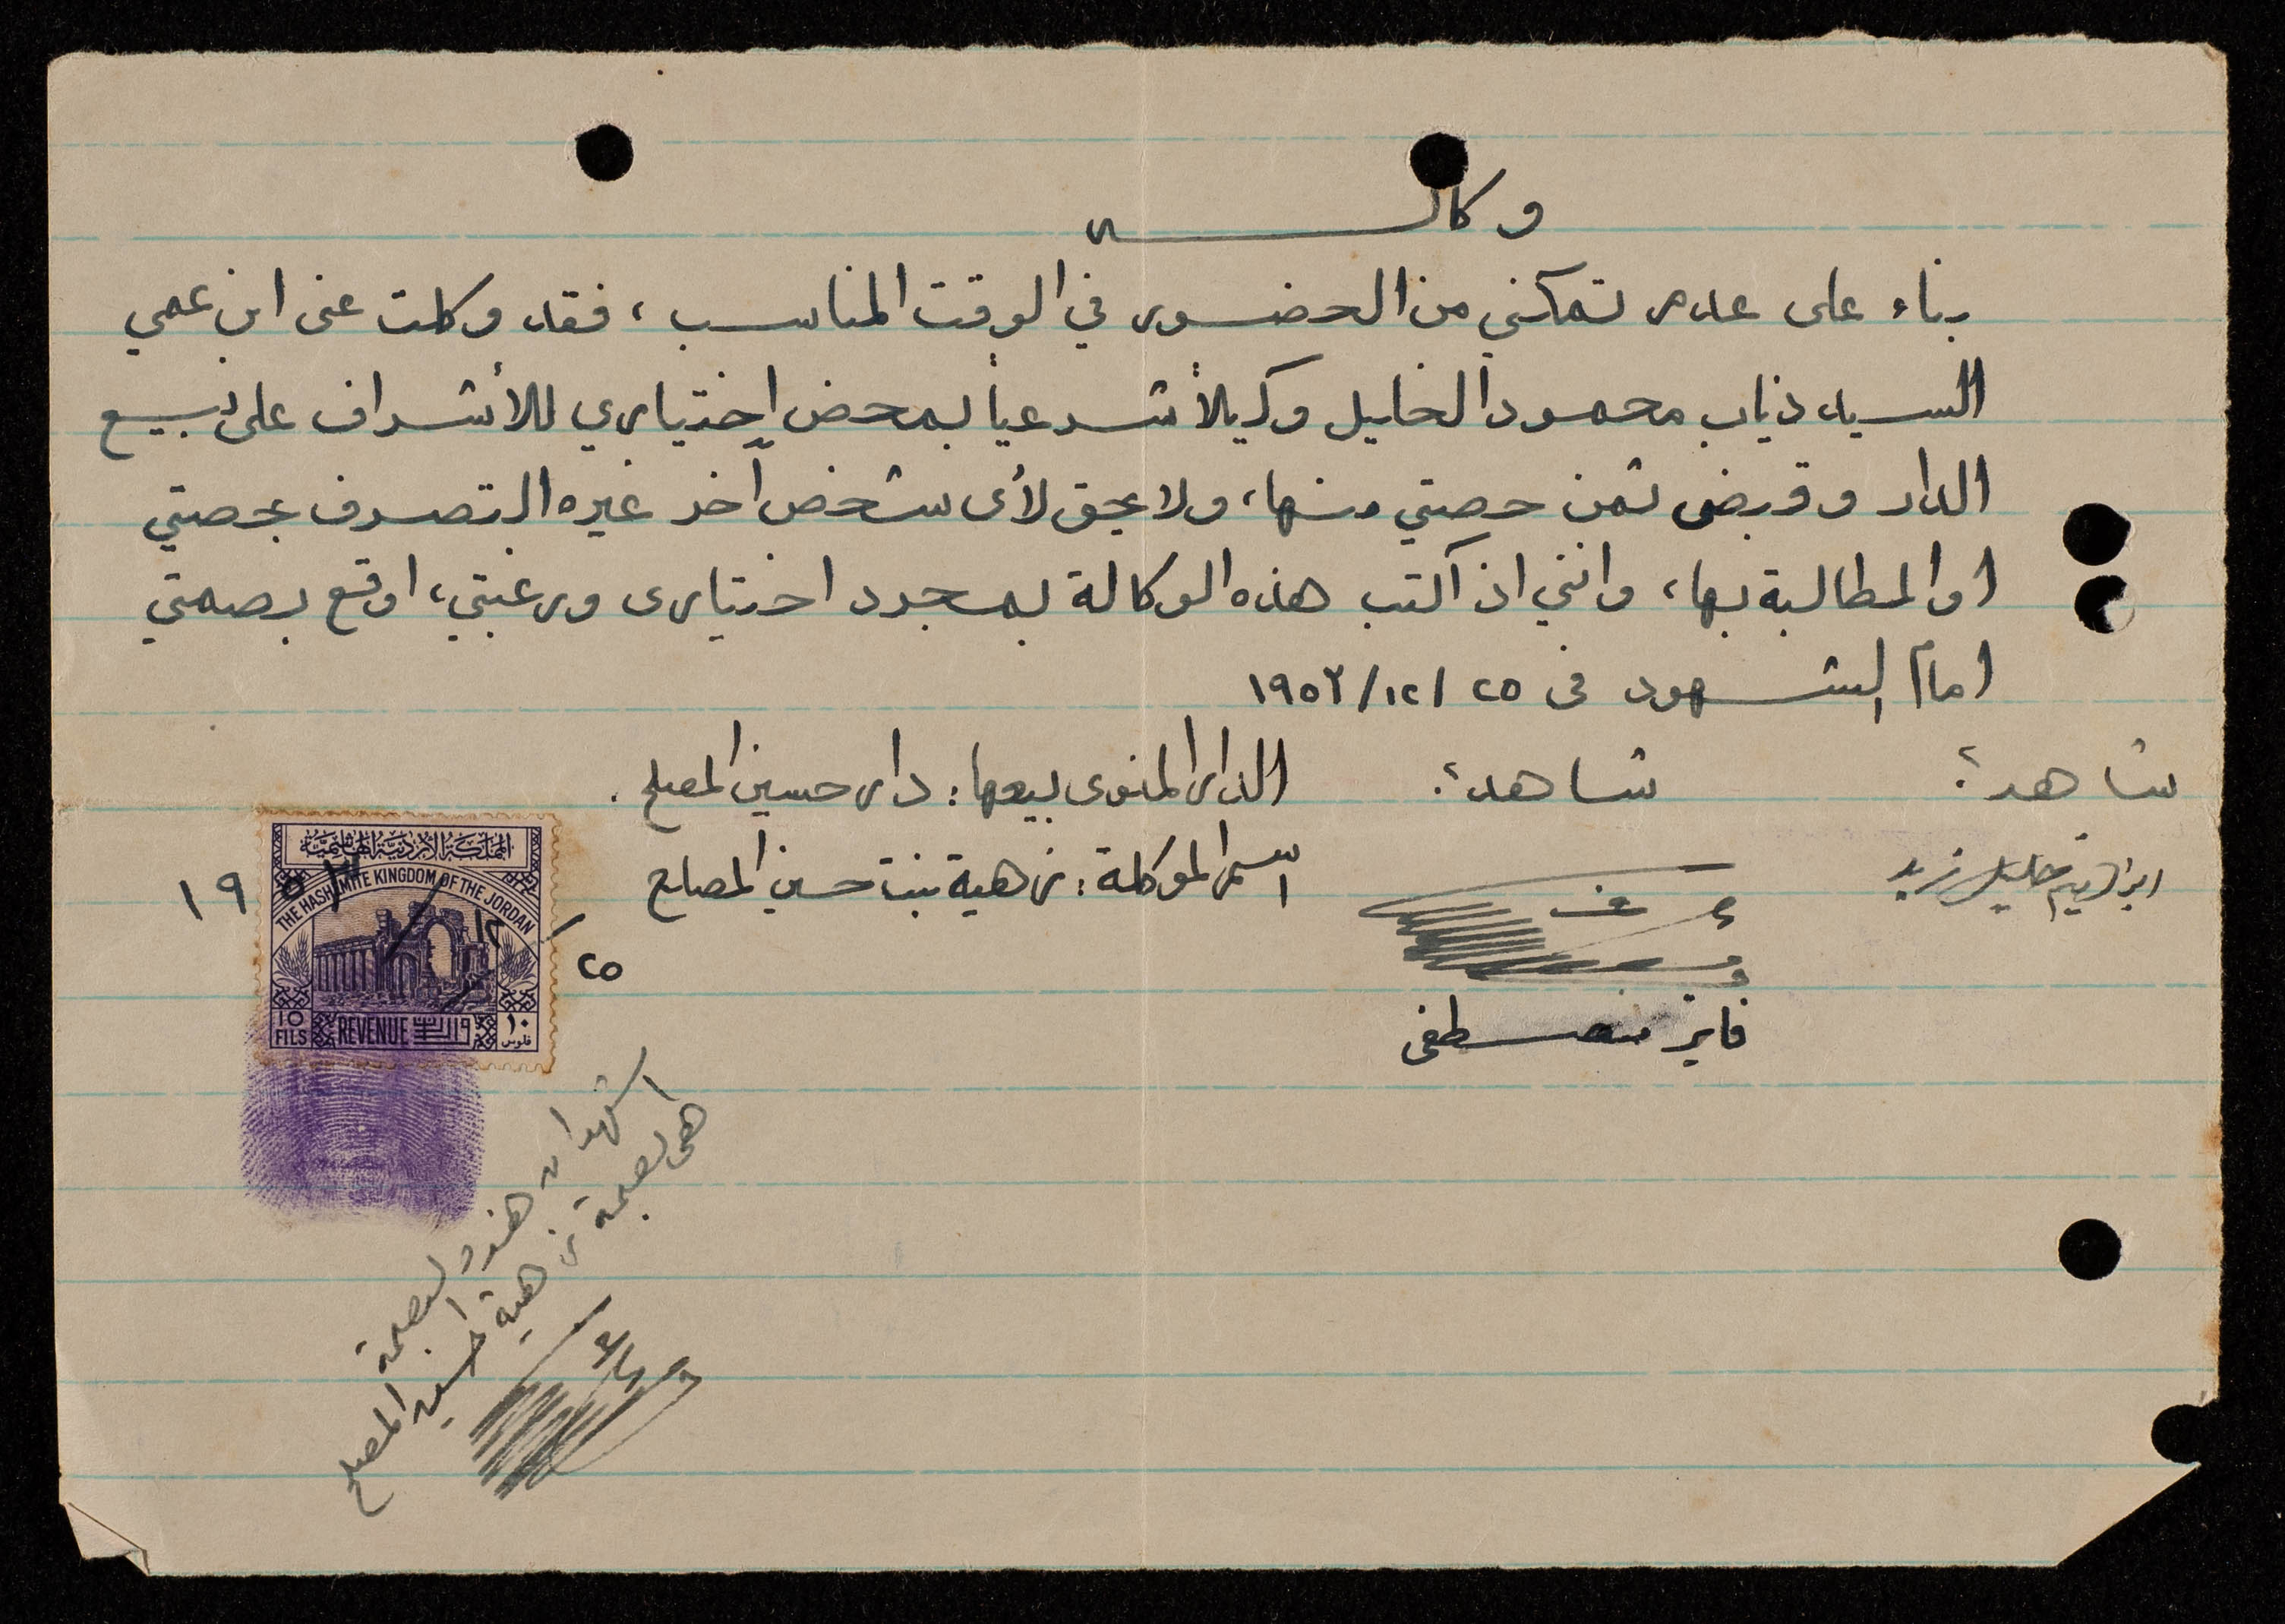 وكالة
بناء على عدم تمكني من الحضور في الوقت المناسب ، فقد وكلت عني ابن عمي
السيد ذياب محمود الخليل وكيلاً شرعياً بمحض إختياري للأشراف على بيع
الدار وقبض ثمن حصتي منها، ولا يحق لأى شخص آخر غيره التصرف بحصتي
او المطالبة بها، وانني اذ اكتب هذه الوكالة بمجرد اختيارى ورغبتي، اوقع بصمتي
امام الشهود فى ٢٥ /١٢/ ١٩٥٢
شاهد: شاهد: الدار المنوى بيعها: دار حسين المصلح .
ابراهيم خليل زيد
اسم الموكلة: نزهية بنت حسين المصلح
فايز مصطفى
المملكة الاردنية الهاشمية
THE HASHEMITE KINGDOM OF THE JORDAN
10 FILS REVENUE واردات ١٠ فلوس
٢٥ / ١٢ / ١٩٥٢
اشهد ان هذه البصمة
هى بصمة نزهية حسين المصلح